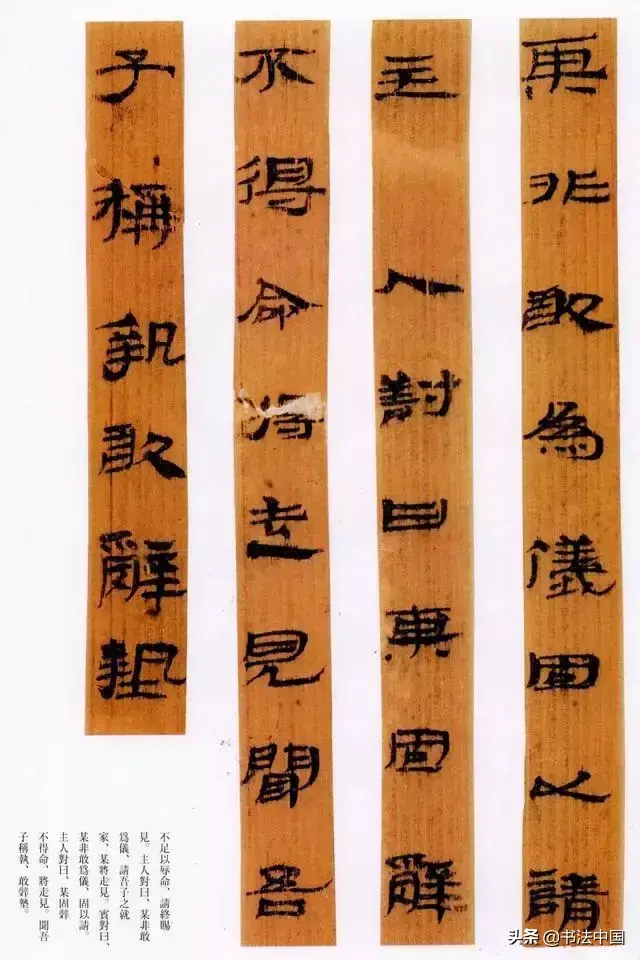 某非敢為儀固以請
主人對曰某固辭
不得命將走見聞吾
子稱執敢辭
不足以辱命、請終賜
見。主人對曰、某非敢
爲儀、請吾子之就
家、某將走見。賓對曰、
某非敢爲儀、固以請。
主人對曰、某固辤
不得命、將走見。聞吾
子稱執、敢辤
头条 @书法中国